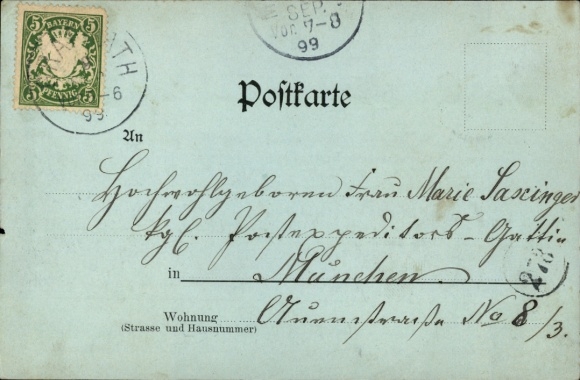 5 BAYERN 5
5 PFENNIG 5
ATH
6
99
SEP.
Vor. 7-8
99
Postkarte
An
Hochwohlgeboren Frau Marie Saxinger
kgl. Postexpeditors-Gattin
in München.
273
Wohnung Auenstraße No 8/3.
(Strasse und Hausnummer)